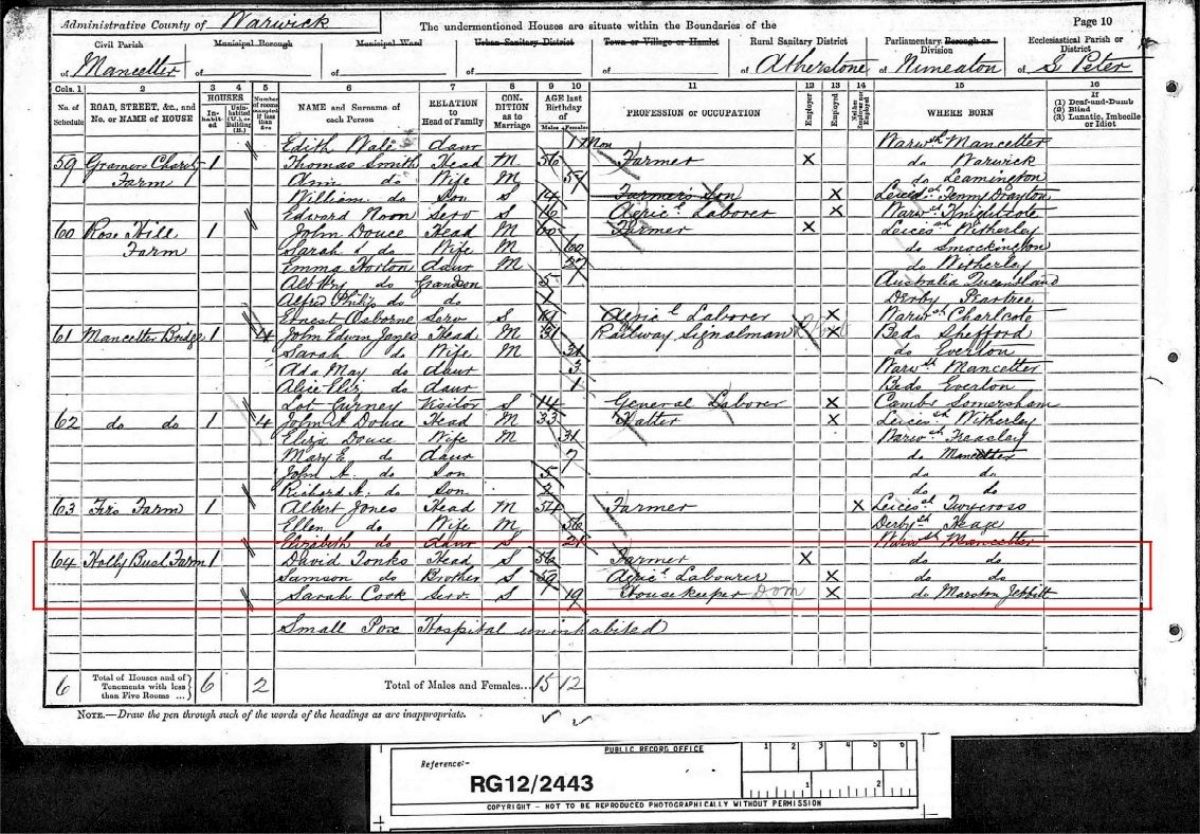 Administrative County of Warwick The undermentioned Houses are situate within the Boundaries of the Page 10
Civil Parish Municipal Borough Municipal Ward Urban Sanitary District Town or Village or Hamlet Rural Sanitary District Parliamentary Borough or Division Ecclesiastical Parish or District
of Mancetter of of of of of Atherstone of Nuneaton of S. Peter
Cols. 1 2 3 4 5 6 7 8 9 10 11 12 13 14 15 16
No. of Schedule ROAD, STREET, &c., and No. or NAME of HOUSE HOUSES Inhabited Uninhabited (U.), or Building (B.) Number of rooms occupied if less than five NAME and Surname of each Person RELATION to Head of Family CONDITION as to Marriage AGE last Birthday of Males Females PROFESSION or OCCUPATION Employer Employed Neither Employer nor Employed WHERE BORN If (1) Deaf-and-Dumb (2) Blind (3) Lunatic, Imbecile or Idiot
Edith Wale daur 1 Mon Warwsh Mancetter
59 Charity Farm 1 Thomas Smith Head M 56 Farmer X do Warwick
Ann do Wife M do Leamington
William do Son S 14 Farmer's Son X Leicsh Fenny Drayton
Edward Noon Serv S 16 Agricl Laborer X Warwsh
60 Rose Hill Farm 1 John Douce Head M 60 Farmer X Leicsh Witherley
Sarah do Wife M 60 do Smockington
Emma Horton daur M 27 do Witherley
do Grandson 5 Australia Queensland
Alfred Philip do do 1 Derby Peartree
Ernest Osborne Serv S 19 Agricl Laborer X Warwsh Charlcote
61 Mancetter Bridge 1 4 John Edwin Jones Head M 31 Railway Signalman X Beds Shefford
Sarah do Wife M 31 do Everton
Ada May do daur 3 Warwsh Mancetter
Alice Eliz do daur 1 Beds Everton
Lot Gurney Visitor S 14 General Laborer X Cambs Somersham
62 do do 1 4 John A Douce Head M 33 Platter X Leicsh Witherley
Eliza Douce Wife M 31 Warwsh Freasley
Mary E do daur 7 do Mancetter
John A. do Son 5 do do
Richard A. do Son 2 do do
63 Firs Farm 1 Albert Jones Head M 54 Farmer X Leicsh Twycross
Ellen do Wife M 56 Derbysh Heage
Elizabeth do daur S 21 Warwsh Mancetter
64 Holly Bush Farm 1 David Tonks Head S 56 Farmer X do do
Samson do Brother S 59 Agricl Labourer X do do
Sarah Cook Serv. S 19 Housekeeper Dom X do Marston Jebbitt
Small Pox Hospital uninhabited
6 Total of Houses and of Tenements with less than Five Rooms ... 6 2 Total of Males and Females... 15 12
NOTE.—Draw the pen through such of the words of the headings as are inappropriate.
PUBLIC RECORD OFFICE
1 2 3 4 5 6
Reference:-
RG12/2443
1 2
COPYRIGHT - NOT TO BE REPRODUCED PHOTOGRAPHICALLY WITHOUT PERMISSION